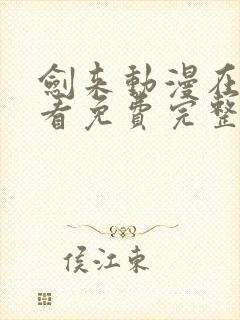 劍来動漫在
看免費完整
侯江東